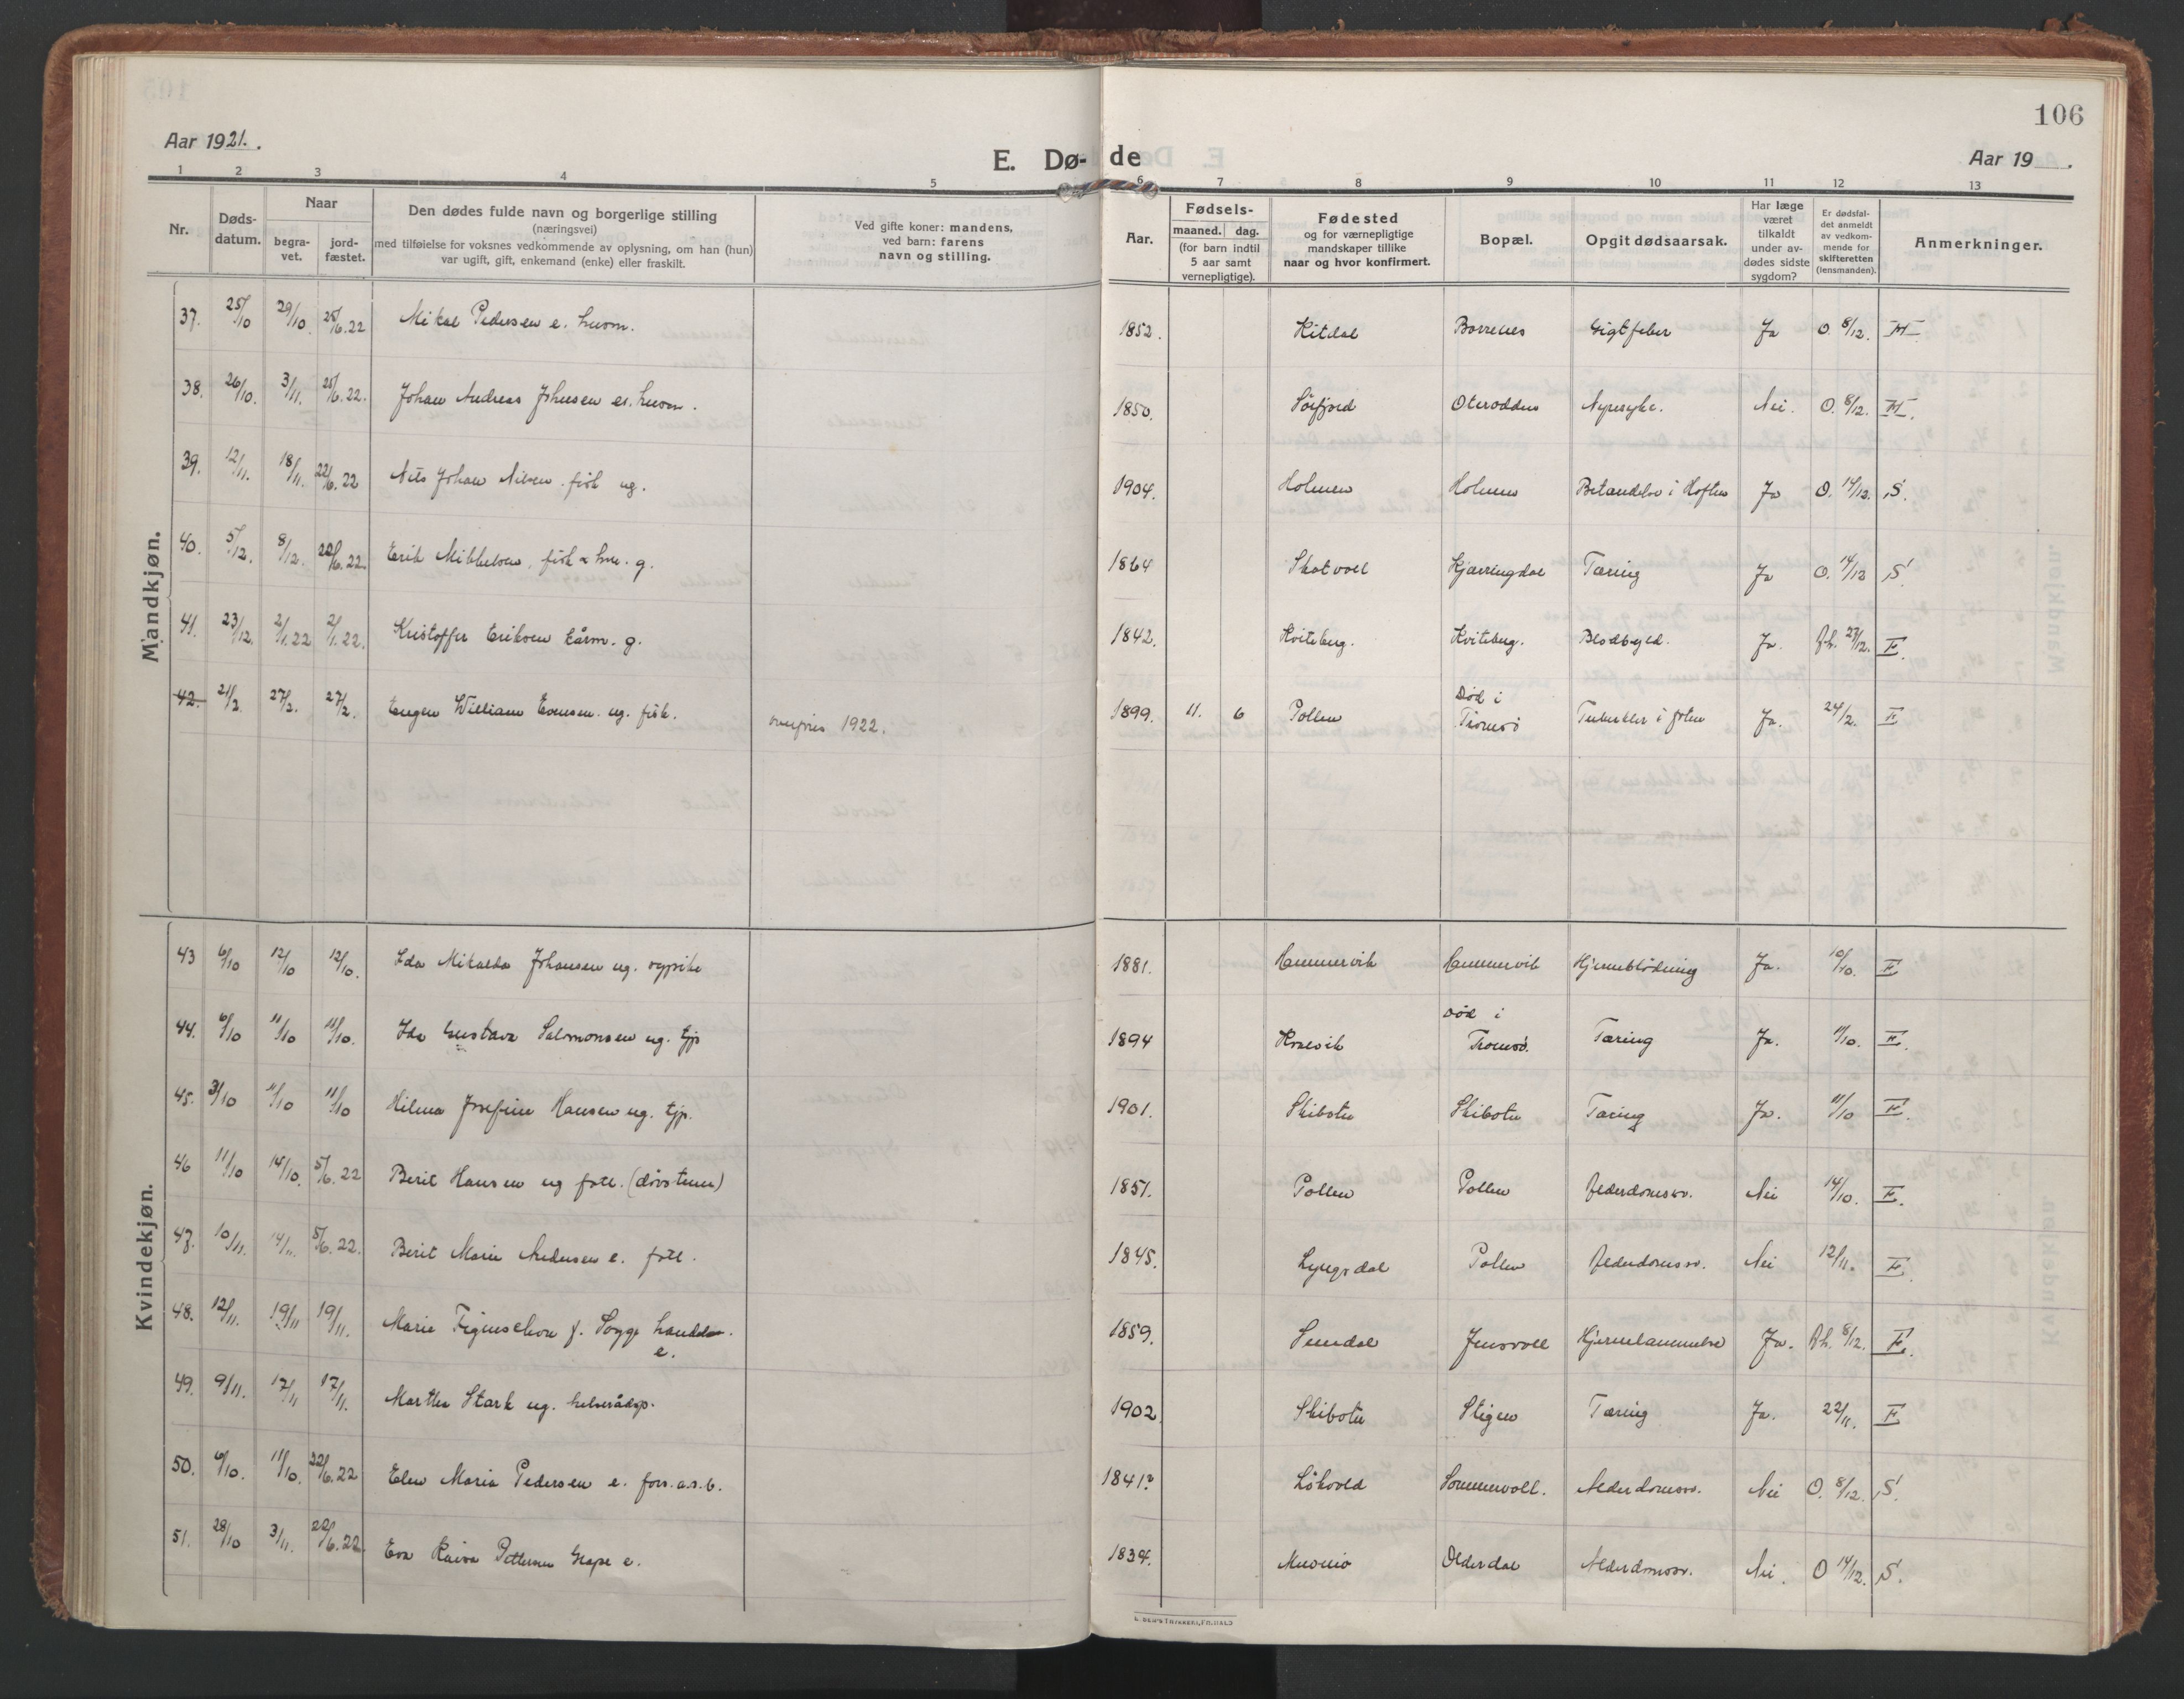 106
Aar 1921.
E. Dø- de
Aar 19 .
1 2 3 4 5 6 7 8 9 10 11 12 13
Nr.
Døds-
datum.
Naar
begra-
vet.
jord-
fæstet.
Den dødes fulde navn og borgerlige stilling
(næringsvei)
med tilføielse for voksnes vedkommende av oplysning, om han (hun)
var ugift, gift, enkemand (enke) eller fraskilt.
Ved gifte koner: mandens,
ved barn: farens
navn og stilling.
Aar.
Fødsels-
maaned. dag.
(for barn indtil
5 aar samt
vernepligtige).
Fødested
og for værnepligtige
mandskaper tillike
naar og hvor konfirmert.
Bopæl.
Opgit dødsaarsak.
Har læge
været
tilkaldt
under av-
dødes sidste
sygdom?
Er dødsfal-
det anmeldt
av vedkom-
mende for
skifteretten
(lensmanden).
Anmerkninger.
Mandkjøn.
37. 25/10 29/10. 25/6.22 Mikal Pedersen e. husm. 1852. Kitdal Borrenes Gigtfeber Ja O. 8/12. M
38. 26/10. 3/11. 25/6.22. Johan Andreas Johnsen e. husm. 1850. Sörfjord Oterodden Nyresyke. Nei. O. 8/12. M.
39. 12/11. 18/11. 22/6.22 Nils Johan Nilsen fisk ug. 1904. Holmen Holmen Betændelse i Hoften Ja O. 14/12. S.
40. 5/12. 8/12. 22/6.22 Erik Mikkelsen, fisk g. 1864 Skatvoll Kjærringdal Tæring Ja O. 14/12 S.
41. 23/12. 2/1.22 2/1.22. Kristoffer Eriksen kårm. g. 1842. Kviteberg. Kviteberg. Blodbyld. Ja. 27/12. F.
42. 21/2. 27/2. 27/2. Eugen William Evensen. ug. fisk. overföres 1922. 1899. 11. 6 Pollen Död i
Tromsö Tuberkler i foten Ja. 24/2. F
Kvindekjøn.
43 6/10 12/10 12/10. Ida Mikalda Johansen ug. 1881. Hammervik Hammervik Hjerneblödning Ja. 10/10. F.
44. 6/10 11/10 11/10. Ida Gustava Salmonsen ug. tjp 1894 Kvalvik död i
Tromsö. Tæring Ja. 11/10. F.
45. 3/10 11/10 11/10 Hilma Josefine Hansen ug. tjp. 1901. Skibotn Skibotn Tæring Ja. 11/10 F.
46 11/10 14/10. 5/6.22 Berit Hansen ug fatt. (dövstum) 1851. Pollen Pollen Alderdomssv. Nei 14/10. F.
47. 10/11. 14/11. 5/6.22. Berit Marie Andersen e. fatt. 1845. Lyngsdal Pollen Alderdomssv. Nei 12/11. F.
48. 12/11. 19/11 19/11. Marie Figenschou f. Sogge
e. 1859. Sundal Jensvoll Hjernelammelse Ja. 8/12. F.
49. 9/11. 17/11 17/11. Martha Stark ug. 1902. Skibotn Stigen Tæring Ja. 22/11. F
50. 6/10. 11/10. 22/6.22 Elen Maria Pedersen e. fors.a.s.b. 1841? Lökvold Sommervoll. Alderdomssv. Nei O. 8/12. S.
51. 28/10 3/11. 22/6.22. Eva Kaisa Pettersen Grape e. 1834. Muonio Olderdal Alderdomssv. Nei. O 14/12. S.